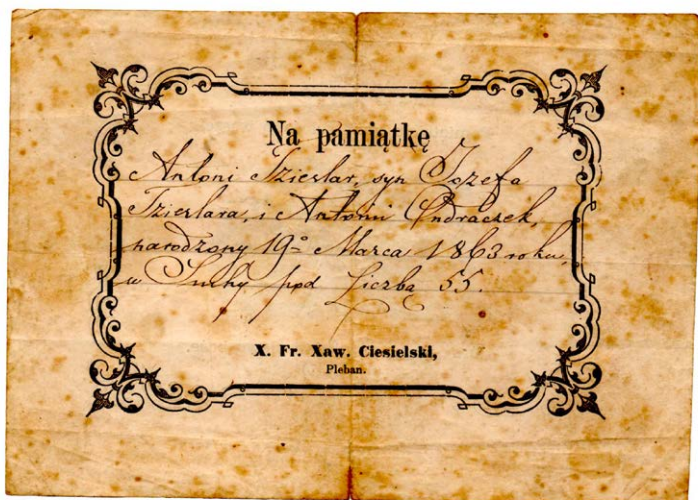 Na pamiątkę
Antoni syn Józefa
i Antoni Ondraczek,
narodzony 19º Marca 1863 roku
w Suchy pod Liczbą 55.
X. Fr. Xaw. Ciesielski,
Pleban.